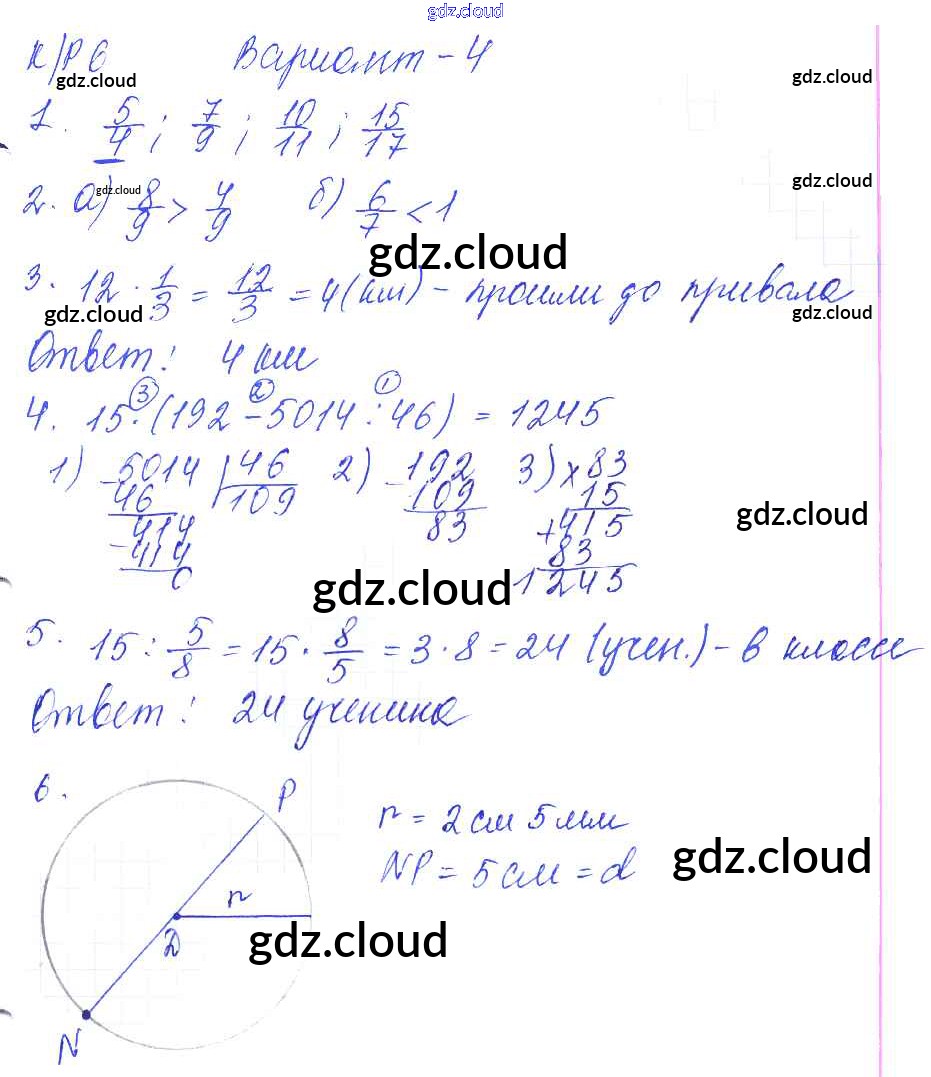 gdz.cloud
К/Р 6 Вариант - 4
gdz.cloud gdz.cloud
1. 5/4 ; 7/9 ; 10/11 ; 15/17
gdz.cloud
2. а) 8/9 > 4/9 б) 6/7 < 1
gdz.cloud
gdz.cloud
3. 12 · 1/3 = 12/3 = 4 (км) - прошли до привала
gdz.cloud gdz.cloud
Ответ: 4 км
3 2 1
4. 15 · (192 - 5014 : 46) = 1245
1) 5014 46 2) 192 3) × 83
- 46 109 - 109 15
414 83 + 415
- 414 83
0 1245
gdz.cloud
gdz.cloud
5. 15 : 5/8 = 15 · 8/5 = 3 · 8 = 24 (учен.) - в классе
Ответ: 24 ученика
6. P
r = 2 см 5 мм
NP = 5 см = d
gdz.cloud
r
D
gdz.cloud
N